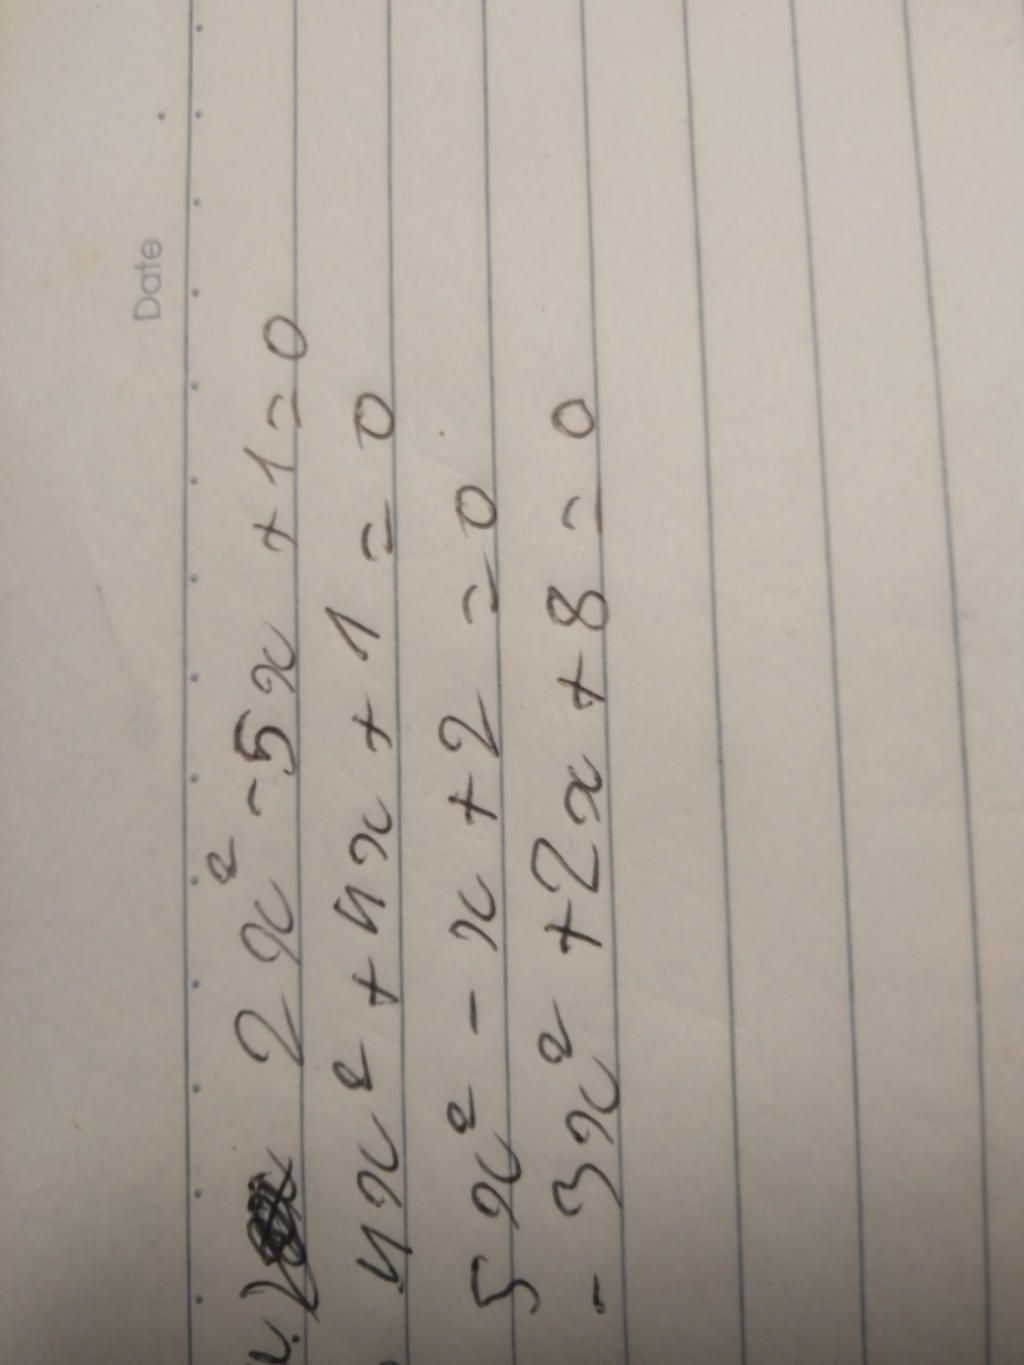 Date
2x² - 5x + 1 = 0
4x² + 4x + 1 = 0
5x² - x + 2 = 0
- 3x² + 2x + 8 = 0